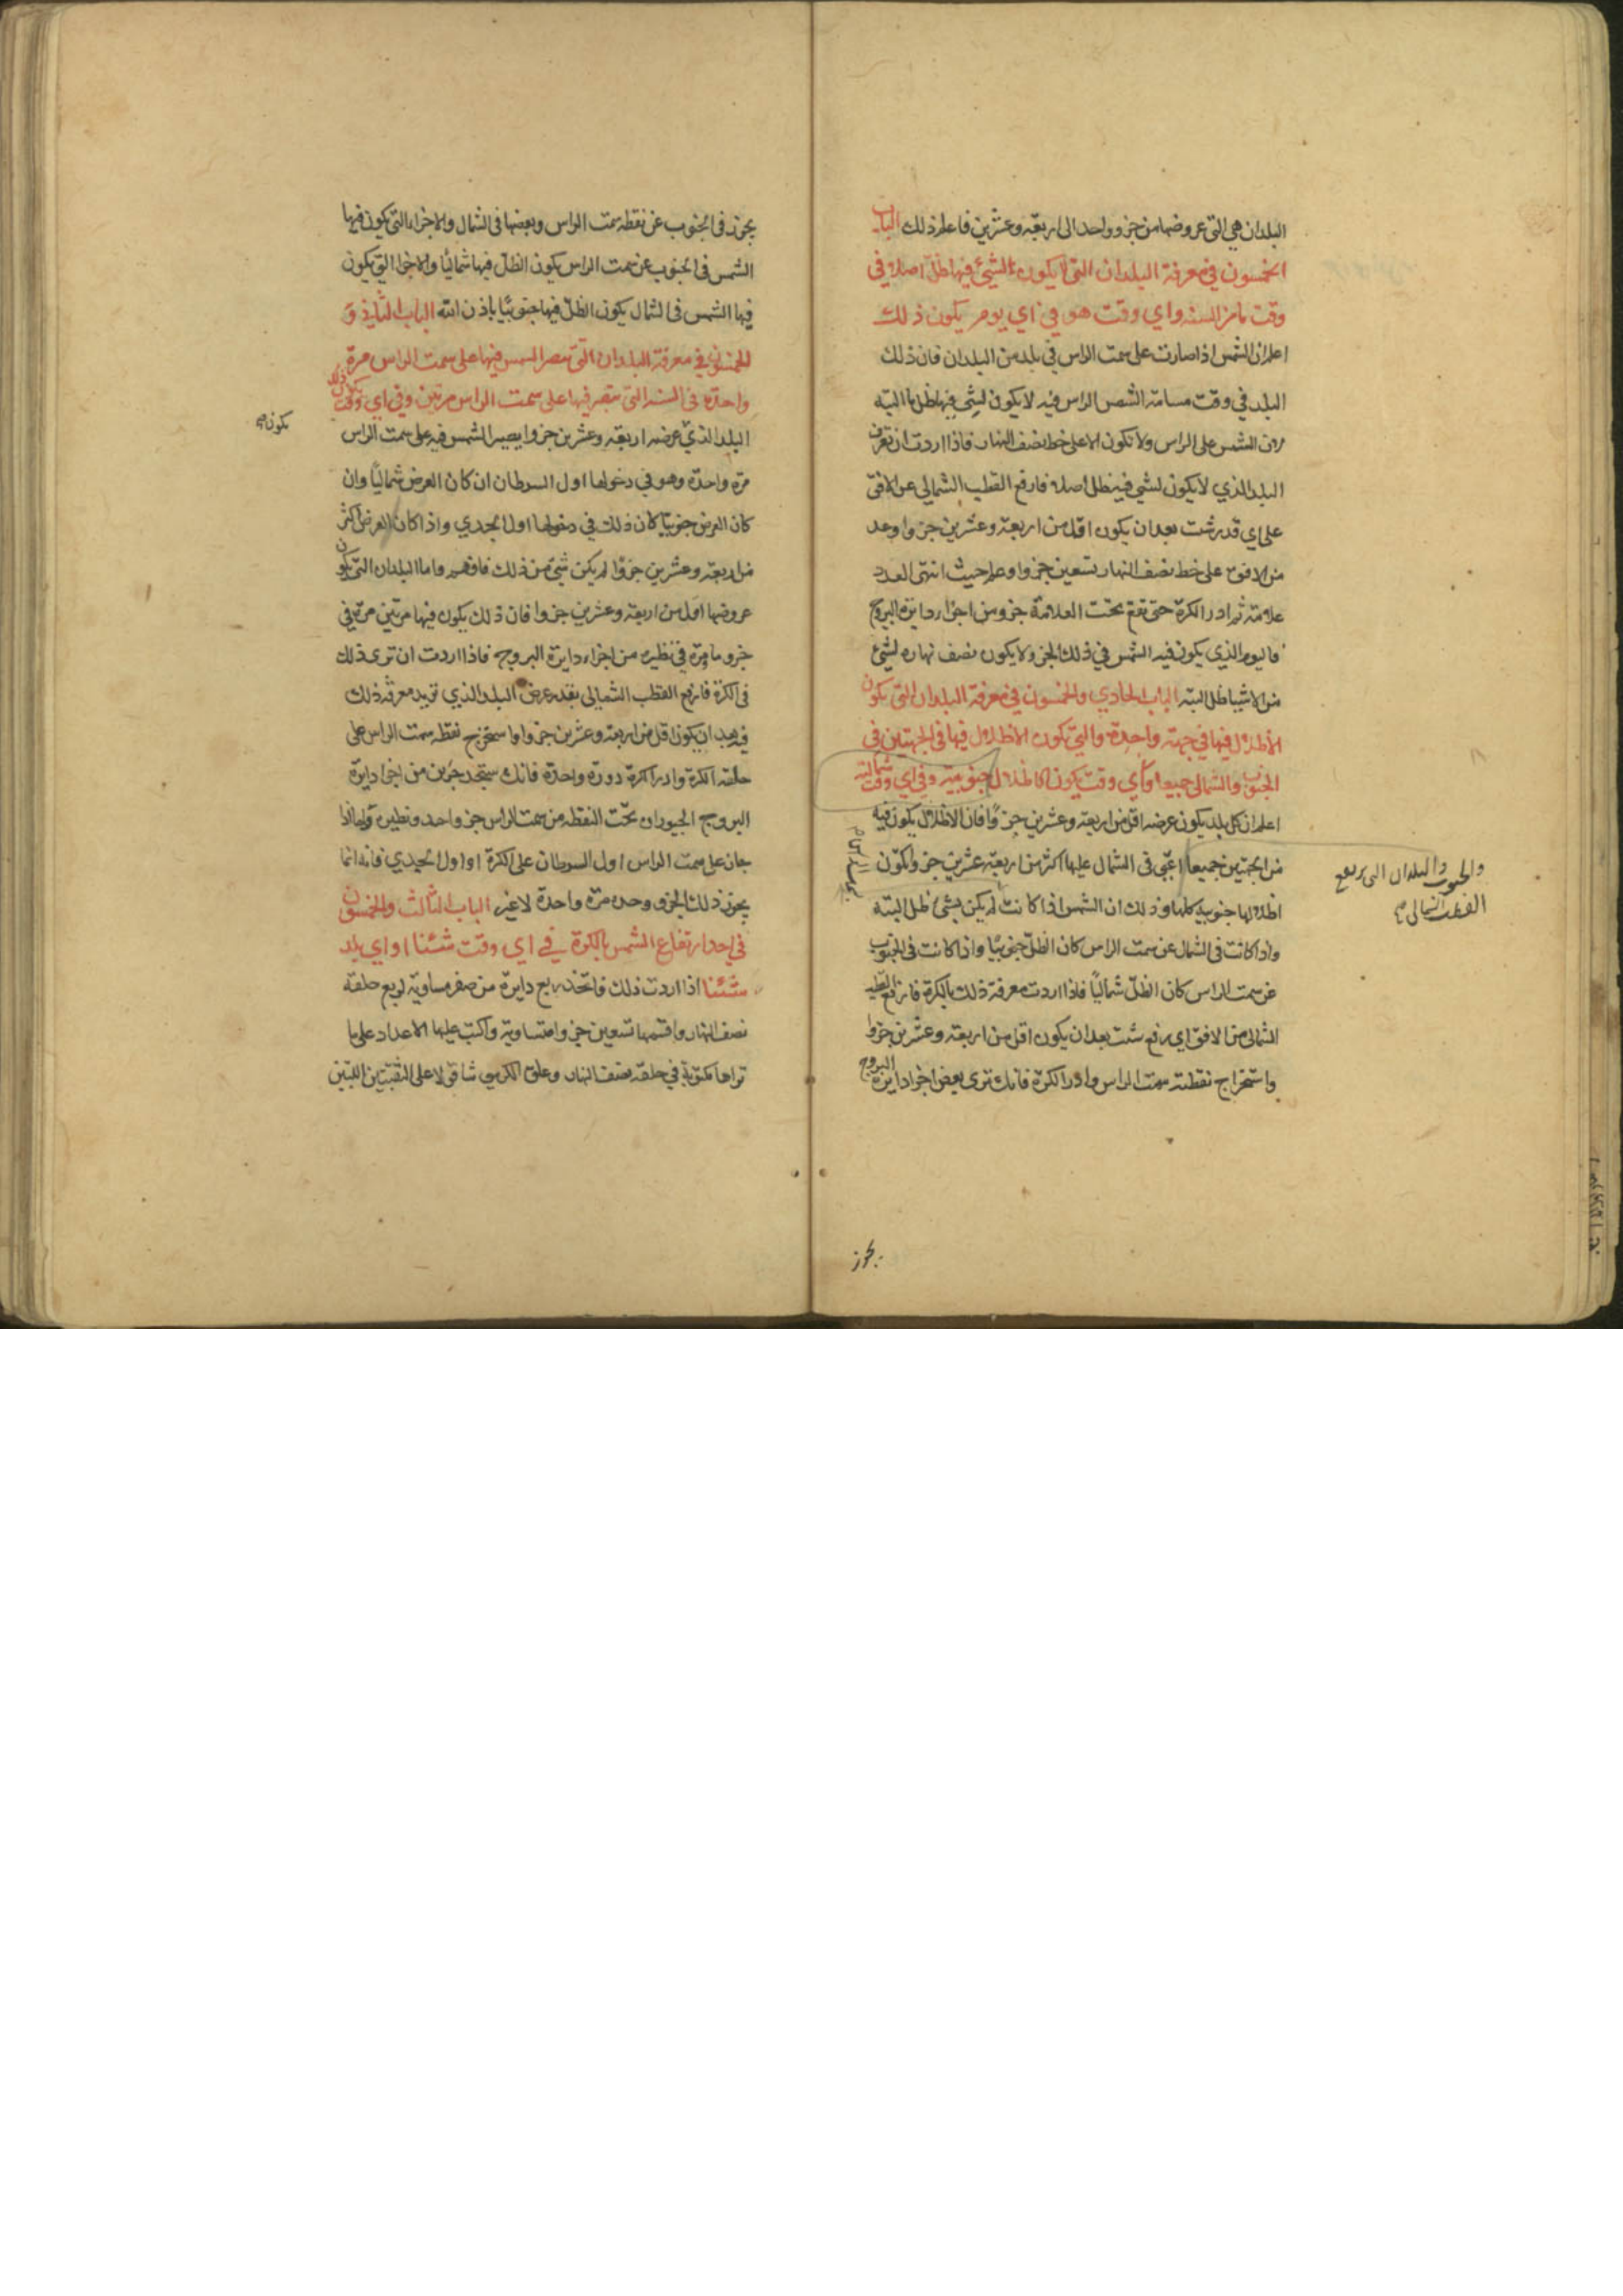 البلدان هي التي عروضها من جزو واحد الى اربعة وعشرين فاعلم ذلك الباب
الخمسون في معرفة البلدان التي لا يكون لشيئ فيها ظل اصلا في
وقت ما من السنه واي وقت هو في اي يوم يكون ذلك
اعلم ان الشمس اذا صارت على سمت الراس في بلد من البلدان فان ذلك
البلد في وقت مسامتة الشمس الراس فيه لا يكون لشي فيها ظل البته
الشمس على الراس ولا تكون الا على خط نصف النهار فاذا اردت ان تعرف
البلد الذي لا يكون لشي فيه ظل اصلا فارفع القطب الشمالي عن الافق
على اي قدر شئت بعد ان يكون اقل من اربعة وعشرين جزوا وعد
من الافق على خط نصف النهار تسعين جزوا وعلم حيث انتهى العدد
علامة ثم ادر الكرة حتى تقع تحت العلامة جزو من اجزاء دايرة البروج
فاليوم الذي يكون فيه الشمس في ذلك الجزو لا يكون نصف نهاره لشئ
من الاشيا ظل البته الباب الحادي والخمسون في معرفة البلدان التي يكون
الاظلال فيها في جهة واحدة والتي تكون الاظلال فيها في الجهتين في
الجنوب والشمالي جميعا واي وقت يكون الاظلال جنوبية وفي اي وقت شمالية
اعلم ان كل بلد يكون عرضه اقل من اربعة وعشرين جزوًا فان الاظلال يكون فيه
من الجهتين جميعا اعني في الشمال عليها اكثر من اربعة عشرين جزوا تكون
والجنوب والبلدان التي يرتفع
القطب الشمالي
اظلالها جنوبية كلها وذلك ان الشمس اذا كانت لم يكن لشئ ظل البته
واذا كانت في الشمال عن سمت الراس كان الظل جنوبيًا واذا كانت في الجنوب
عن سمت الراس كان الظل شماليًا فاذا اردت معرفة ذلك بالكرة فارفع القطب
الشمالي من الافق اي رفع شئت بعد ان يكون اقل من اربعة وعشرين جزوا
واستخراج نقطة سمت الراس وادر الكرة فانك ترى بعض اجزا دايرة البروج
يجوز
يجوز في الجنوب عن نقطه سمت الراس وبعضها في الشمال والاجزاء التي يكون فيها
الشمس في الجنوب عن سمت الراس يكون الظل فيها شماليًا والاجزا التي يكون
فيها الشمس في الشمال يكون الظل فيها جنوبيًا باذن الله الباب الثاني و
الخمسون في معرفة البلدان التي تصير الشمس فيها على سمت الراس مرة
واحدة في السنة التي تصير فيها على سمت الراس مرتين وفي اي وقت يكون ذلك
يكون
البلد الذي عرضه اربعة وعشرين جزوا يصير الشمس فيه على سمت الراس
مرة واحدة وهو في دخولها اول السرطان ان كان العرض شماليًا وان
كان العرض جنوبيًا كان ذلك في دخولها اول الجدي واذا كان العرض اكثر
من اربعة وعشرين جزوًا لم يكن شئ من ذلك فافهم واما البلدان التي يكون
عروضها اقل من اربعة وعشرين جزوا فان ذلك يكون فيها مرتين مرة في
جزو ما ومرة في نظيره من اجزاء دايرة البروج فاذا اردت ان ترى ذلك
في الكرة فارفع القطب الشمالي بقدر عرض البلد الذي تريد معرفة ذلك
فيه بعد ان يكون اقل من اربعة وعشرين جزوا واستخرج نقطه سمت الراس على
حلقه الكرة وادر الكرة دورة واحدة فانك ستجد جزئين من اجزا دايرة
البروج يجوزان تحت النقطه من سمت الراس جزو واحد ونظيره واما اذا
جاز على سمت الراس اول السرطان على الكرة او اول الجدي فانه انما
يجوز ذلك الجزو وحده مرة واحدة لا غير الباب الثالث والخمسون
في اخذ ارتفاع الشمس بالكرة في اي وقت شئنا او اي بلد
شئنا اذا اردت ذلك فاتخذ ربع دايرة من صفر مساوية لربع حلقة
نصف النهار واقسمها تسعين جزوا متساوية واكتب عليها الاعداد على ما
تراها مكتوبة في حلقة نصف النهار وعلق الكرسي شاقولا على الثقبتين اللتين